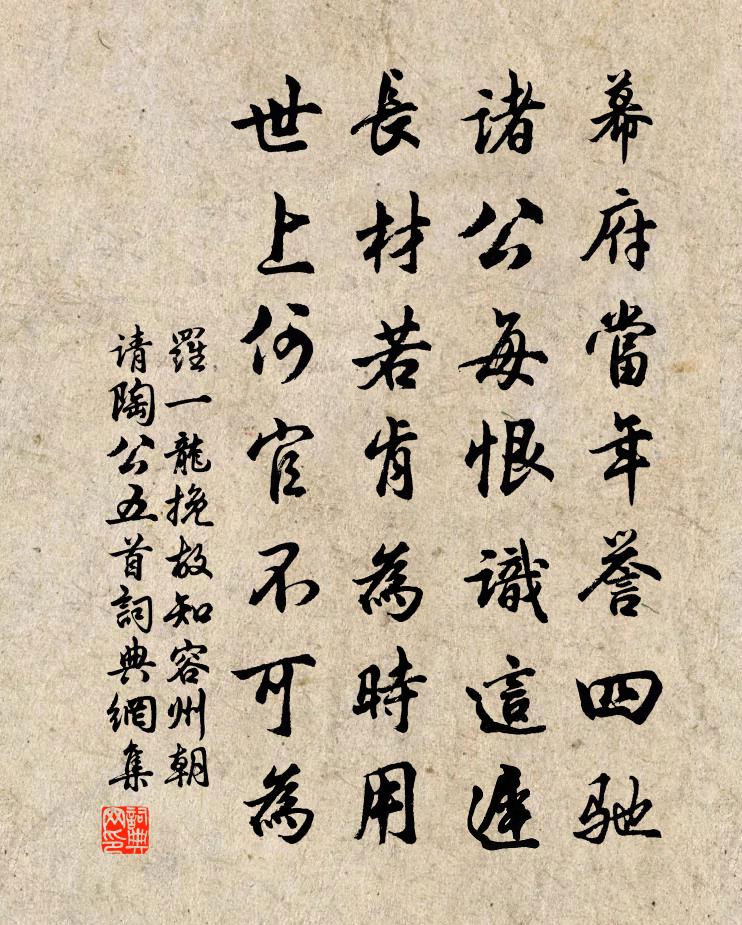 幕府當年譽四馳
諸公每恨識這遲
長材若肯為時用
世上何官不可為
羅一龍挽故知容州朝
请陶公五首詞典網集
詞典
网印